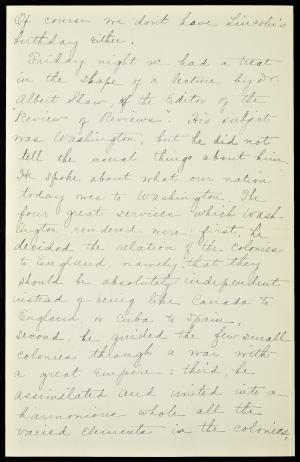 Of course we don't have Lincoln's
birthday either.
Friday night we had a treat
in the shape of a lecture by Dr.
Albert Shaw, of the Editor of the
Review of Reviews. His subject
was Washington, but he did not
tell the usual things about him.
He spoke about what our nation
today owes to Washington. The
four great services which Wash-
ington rendered were: first, he
decided the relation of the colonies
to England, namely, that they
should be absolutely independent
instead of being like Canada to
England, or Cuba to Spain,
second, he guided the few small
colonies through a war with
a great Empire; third, he
assimilated and united into a
harmonious whole all the
varied elements in the colonies,